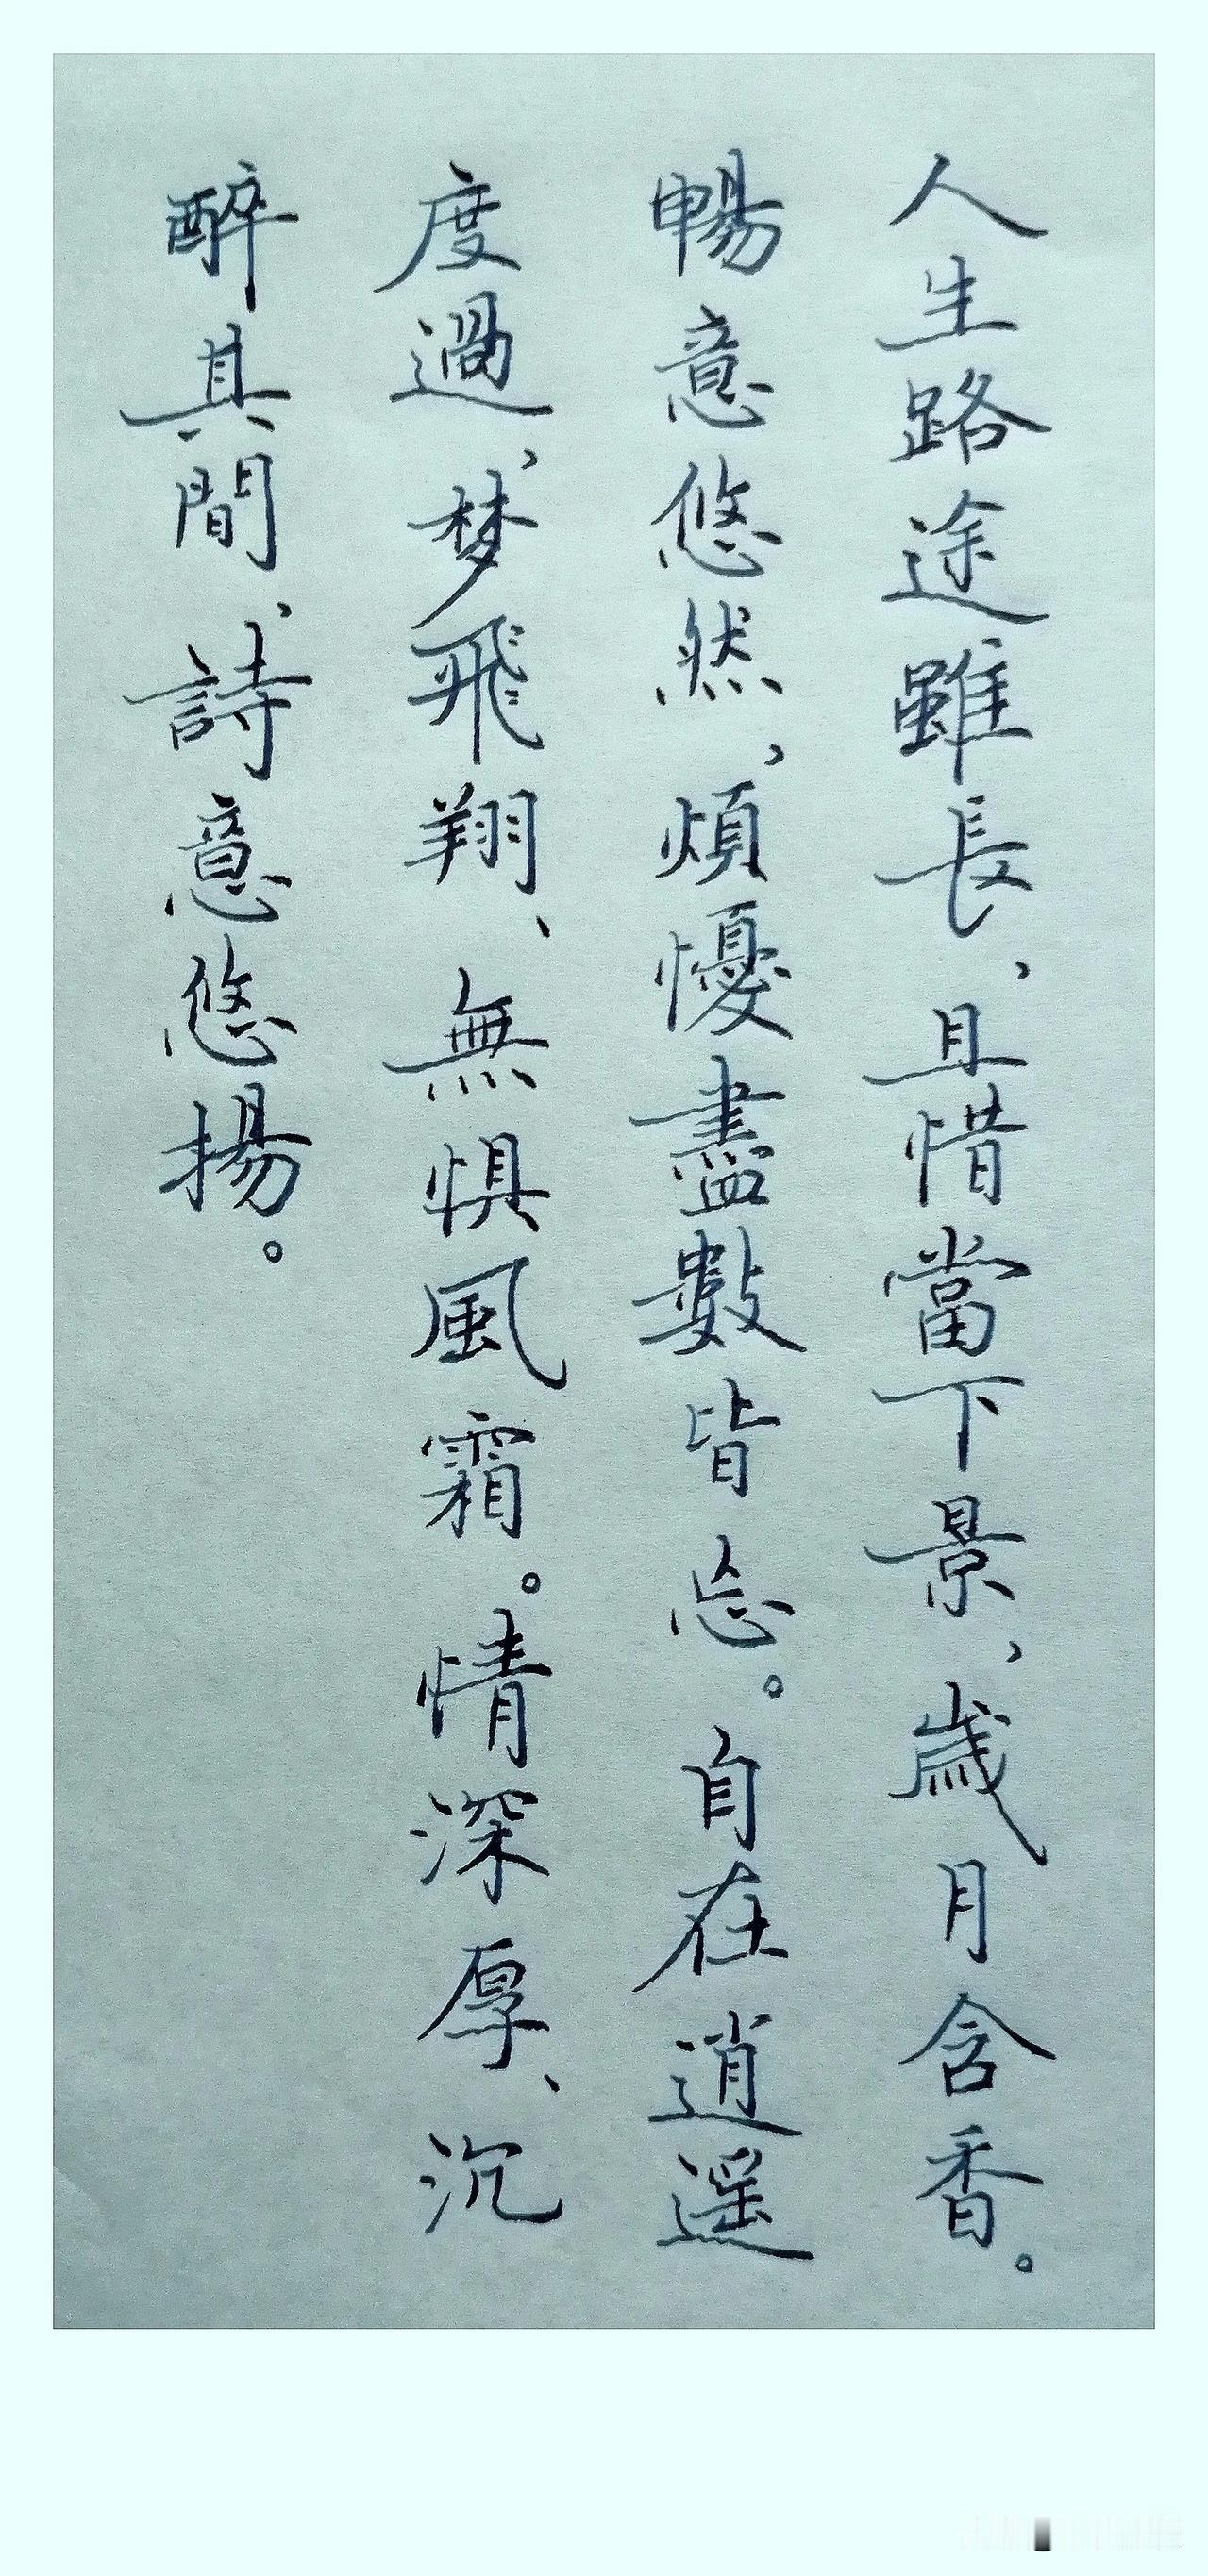 人生路途雖長，且惜當下景，歲月含香。
暢意悠然，煩憂盡數皆忘。自在逍遥
度過，梦飛翔、無惧風霜。情深厚、沉
醉其間，詩意悠揚。